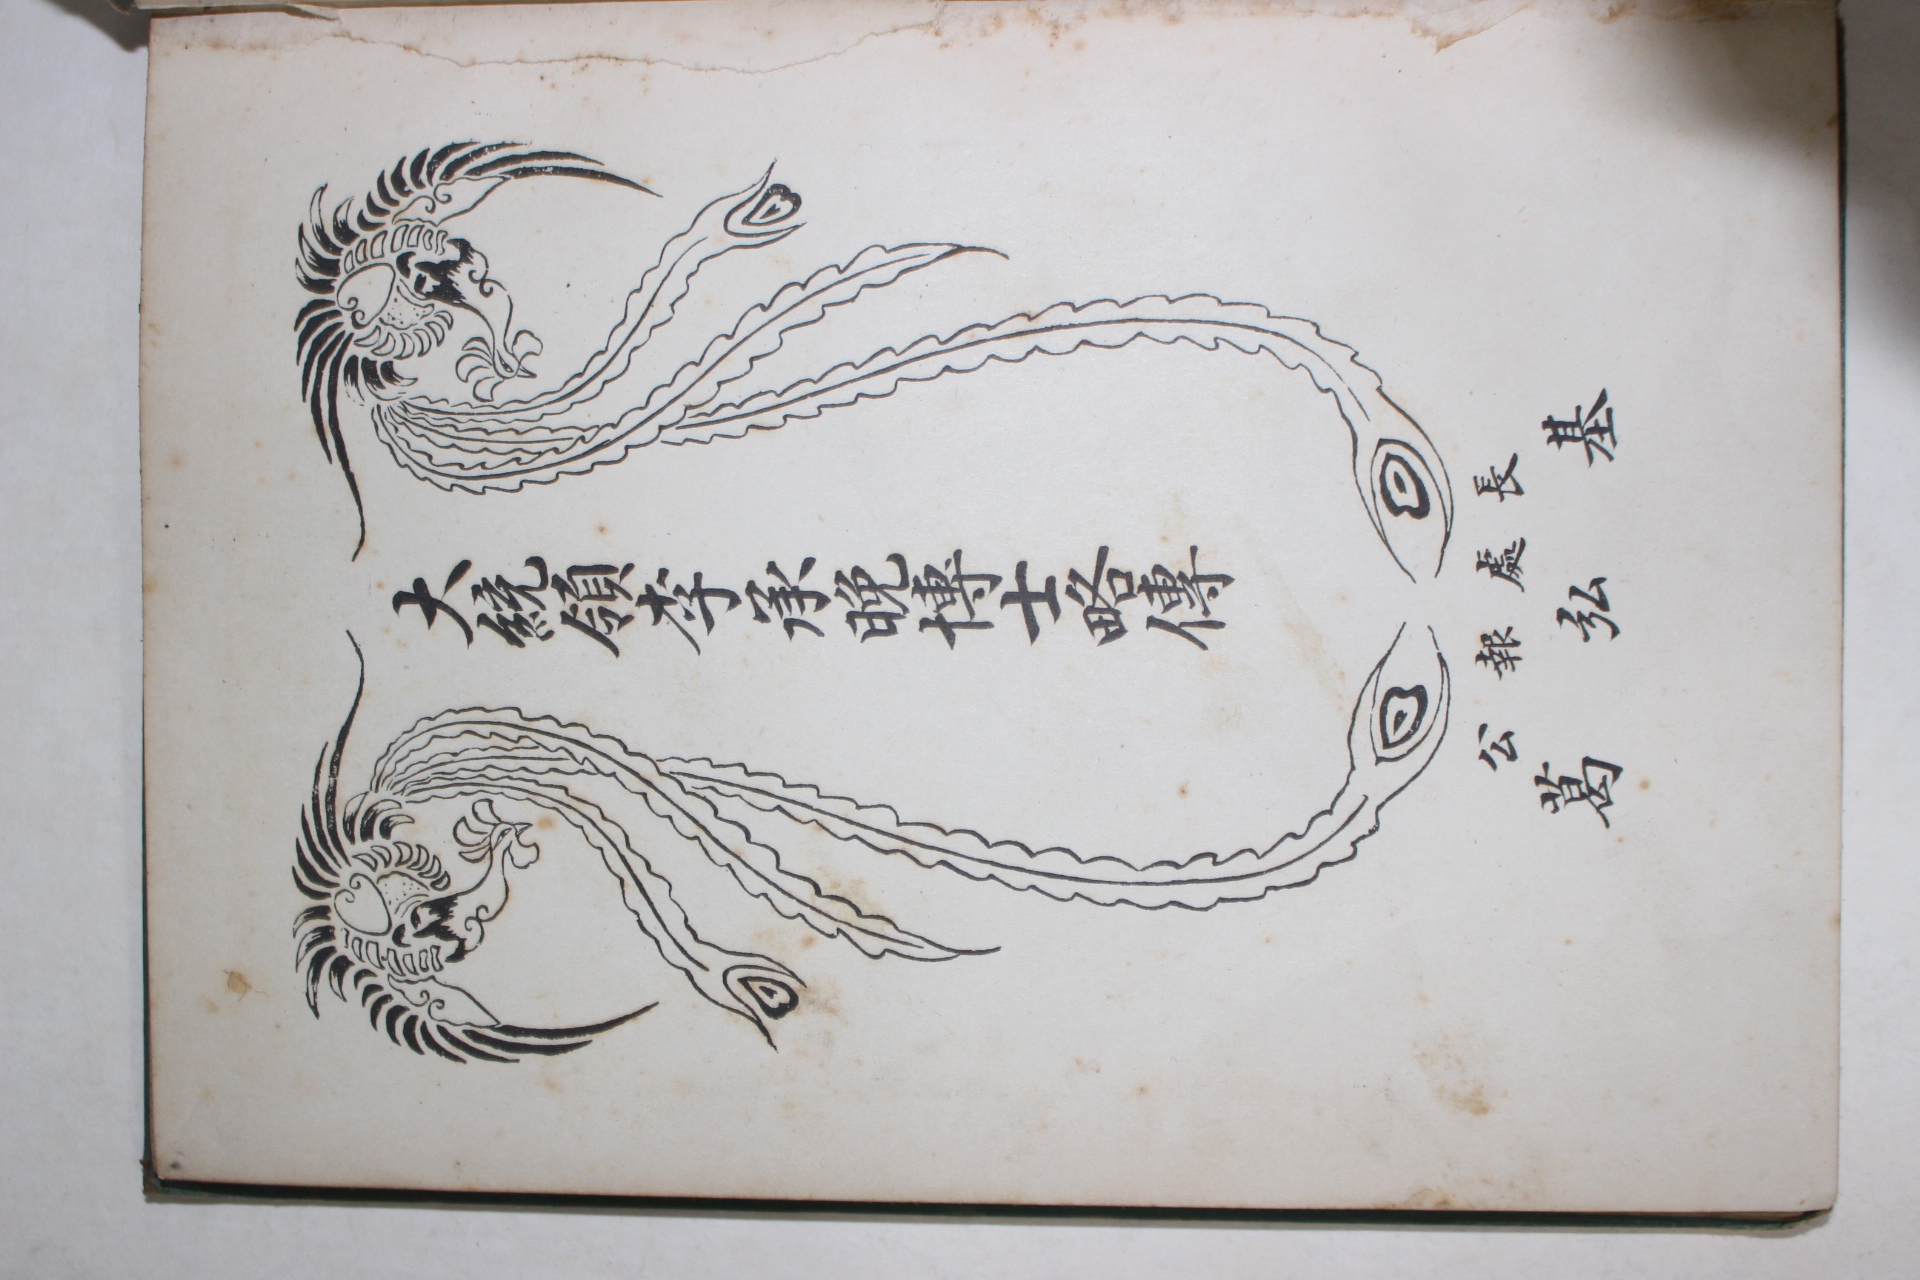 大統領李承晩博士略傳
公報處長
葛弘基